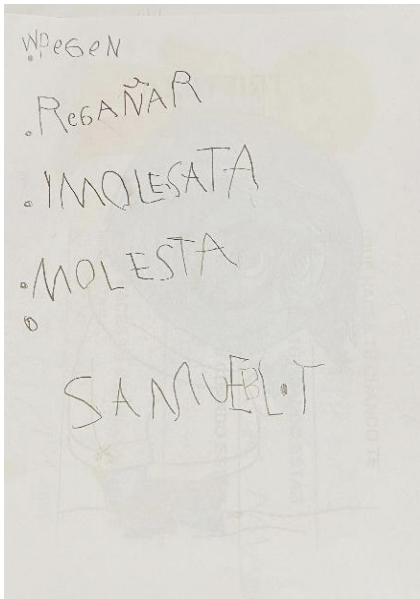 . PEGEN
. REGAÑAR
. IMOLESATA
. MOLESTA
SAMUEBL.T